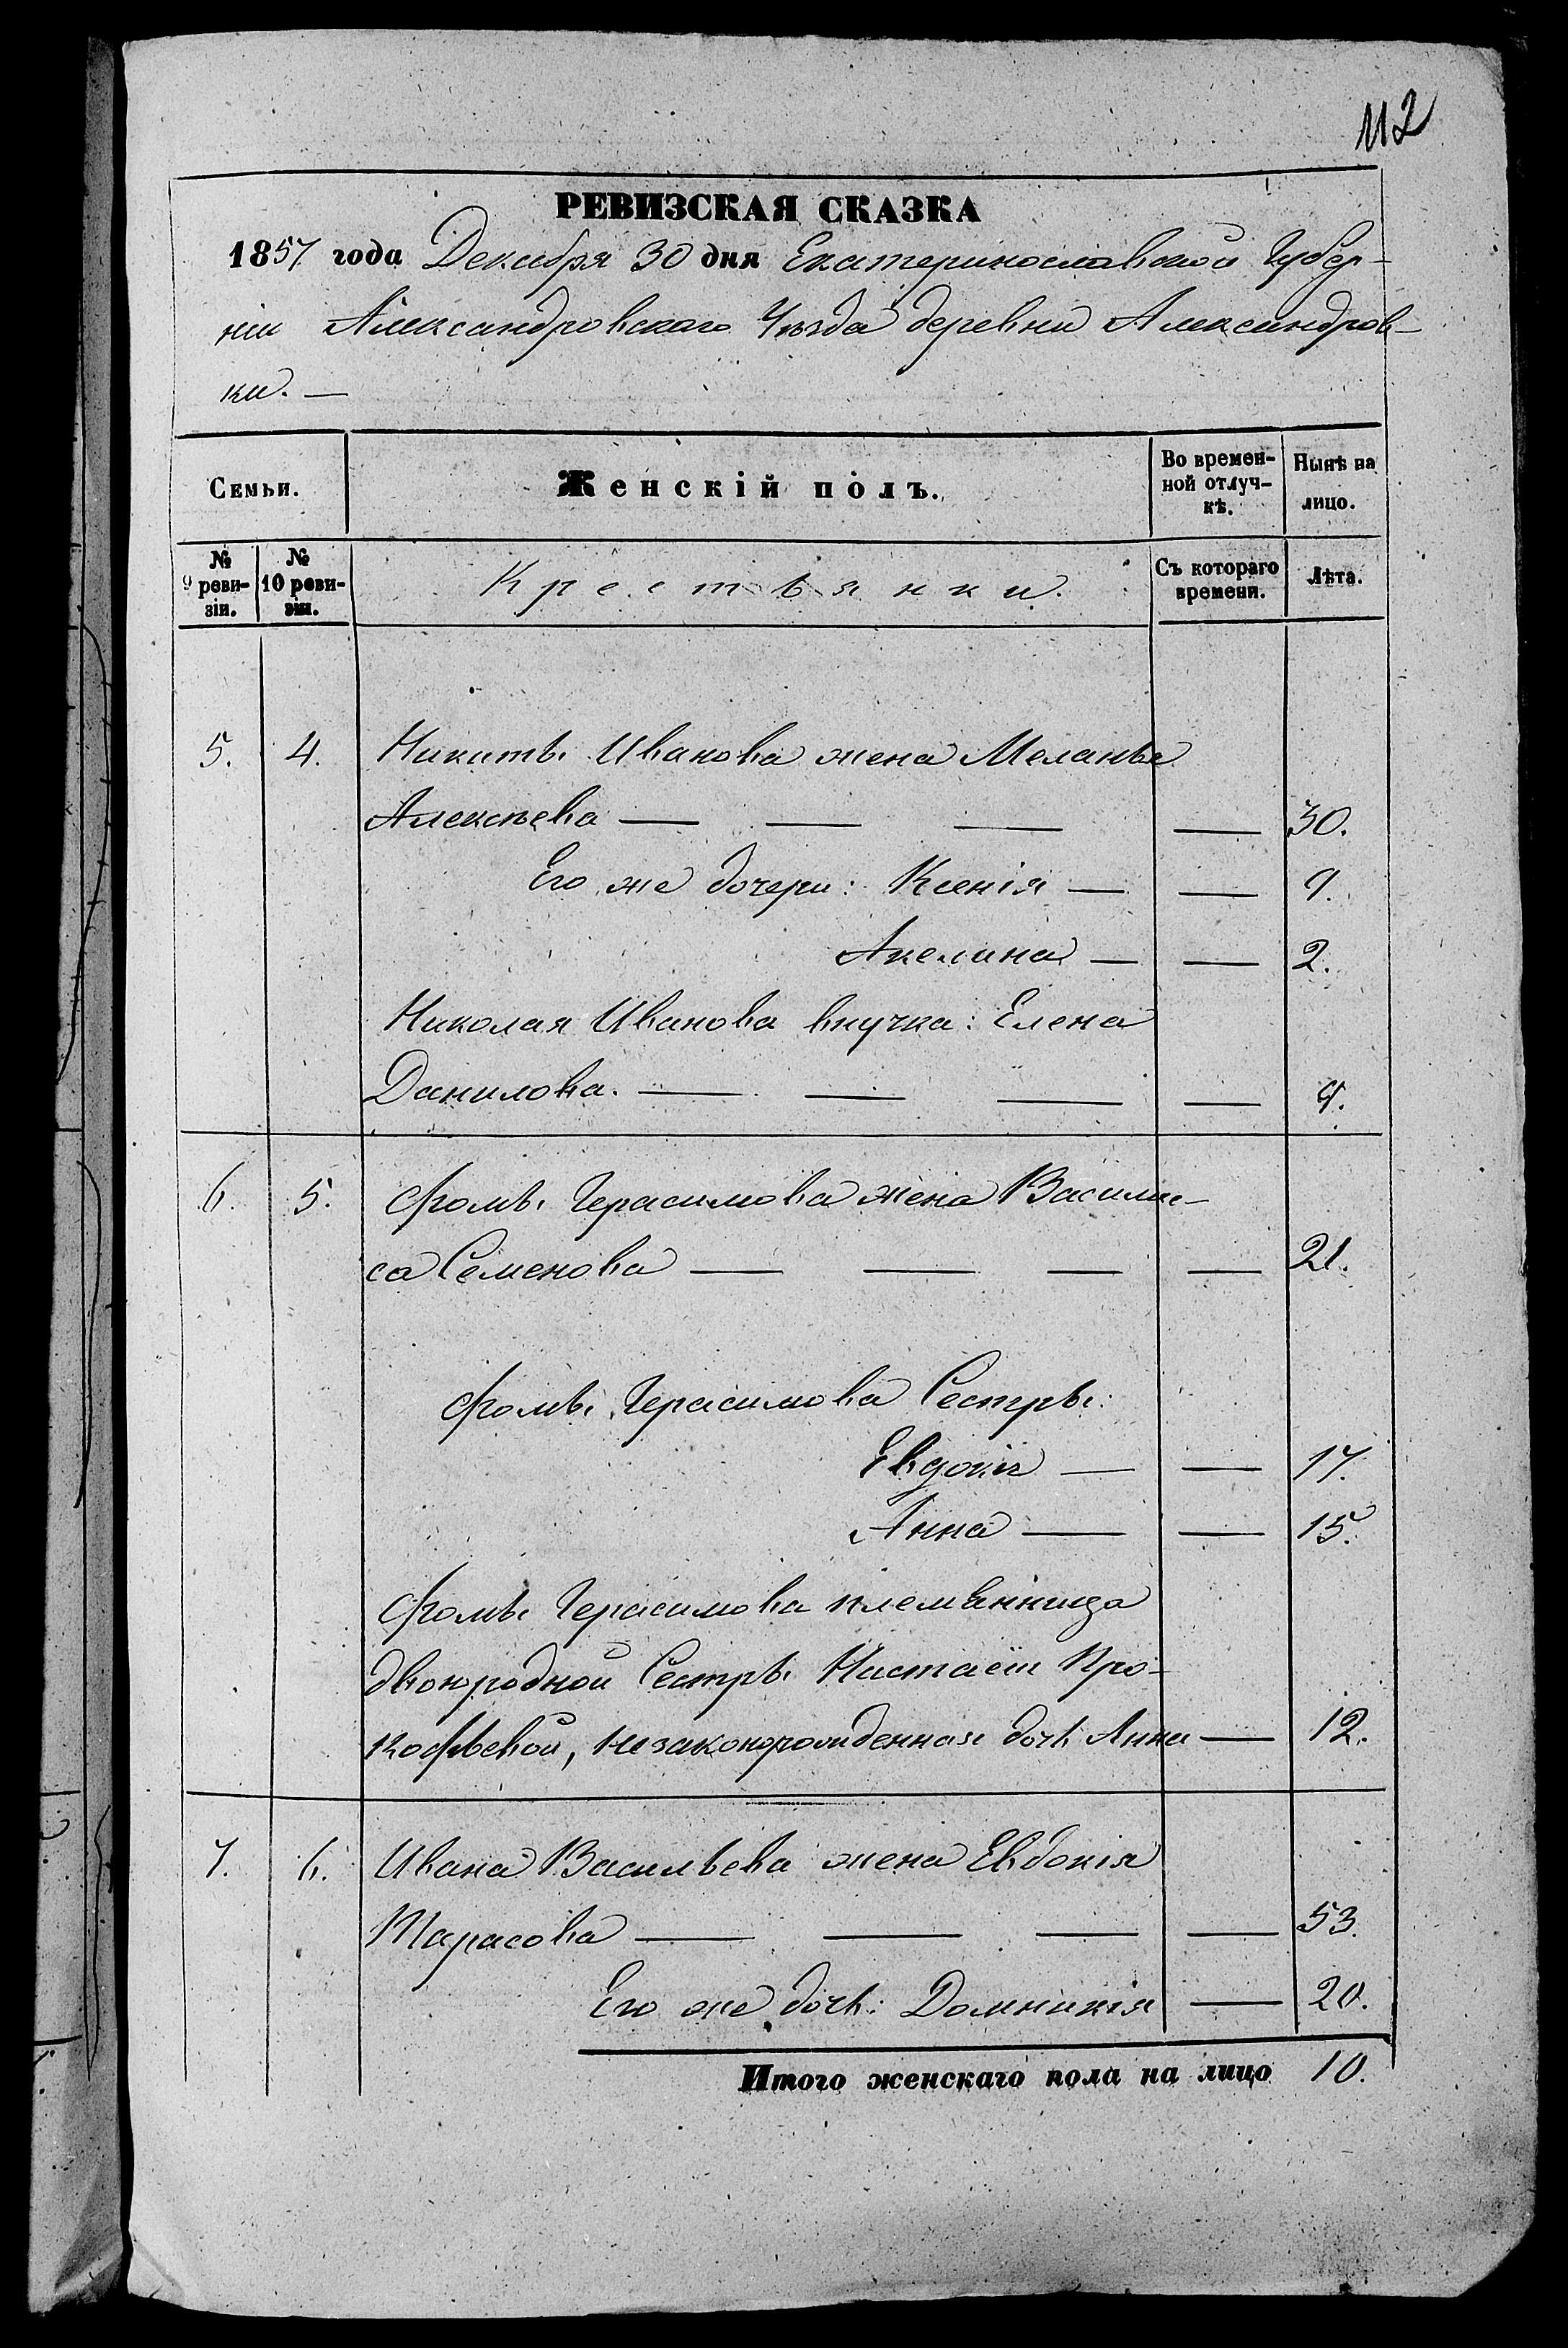 112
РЕВИЗСКАЯ СКАЗКА
1857 года Декабря 30 дня Екатеринославской Губер-
ніи Александровскаго Уѣзда деревни Александров-
ки. —
Семьи.
Женскій полъ.
Во времен-
ной отлуч-
кѣ.
Нынѣ на
лицо.
№
9 реви-
зіи.
№
10 реви-
зіи.
Крестьянки.
Съ котораго
времени.
Лѣта.
5. 4. Никиты Иванова жена Меланья
Алексѣева — — — — 30.
Его же дочери: Ксенія — — 9.
Акелина — — 2.
Николая Иванова внучка: Елена
Данилова. — — — — 9.
6. 5. Фомы Герасимова жена Васили-
са Семенова — — — — 21.
Фомы Герасимова Сестры:
Евдокія — — 17.
Анна — — 15.
Фомы Герасимова племянница
двоюродной Сестры Настасіи Про-
кофьевой, незаконорожденная дочь Анна — 12.
7. 6. Ивана Васильева жена Евдокія
Тарасова — — — — 53.
Его же дочь: Домникія — 20.
Итого женскаго пола на лицо 10.